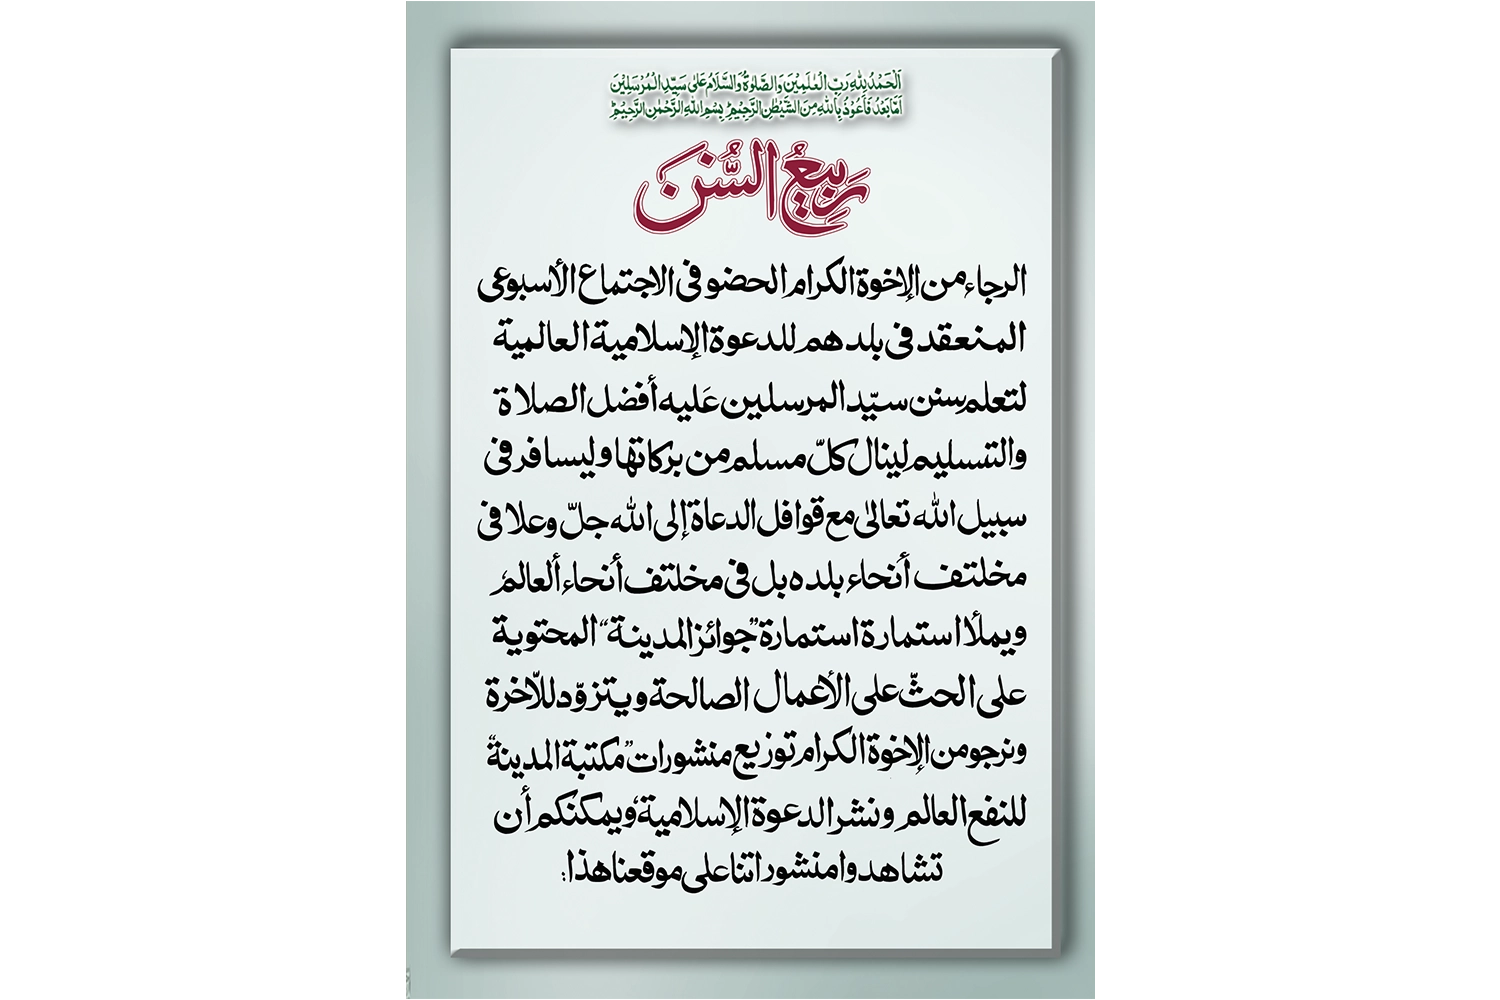 اَلْحَمْدُ لِلّٰهِ رَبِّ الْعٰلَمِيْنَ وَالصَّلٰوةُ وَالسَّلَامُ عَلٰى سَيِّدِ الْمُرْسَلِيْنَ
اَمَّا بَعْدُ فَاَعُوْذُ بِاللّٰهِ مِنَ الشَّيْطٰنِ الرَّجِيْمِ بِسْمِ اللّٰهِ الرَّحْمٰنِ الرَّحِيْمِ
رَبِيْعُ السُّنَن
الرجاء من الإخوة الكرام الحضو فى الاجتماع الأسبوعى
المنعقد فى بلدهم للدعوة الإسلامية العالمية
لتعلم سنن سيّد المرسلين عَليه أفضل الصلاة
والتسليم لينال كلّ مسلم من بركاتها وليسافر فى
سبيل الله تعالىٰ مع قوافل الدعاة إلى الله جلّ وعلا فى
مخلتف أنحاء بلده بل فى مخلتف أنحاء ألعالم
ويملأ استمارة استمارة "جوائز المدينة" المحتوية
على الحثّ على الأعمال الصالحة ويتزوّد للآخرة
ونرجو من الإخوة الكرام توزيع منشورات "مكتبة المدينة"
للنفع العالم ونشر الدعوة الإسلامية، ويمكنكم أن
تشاهدوا منشوراتنا على موقعنا هذا: